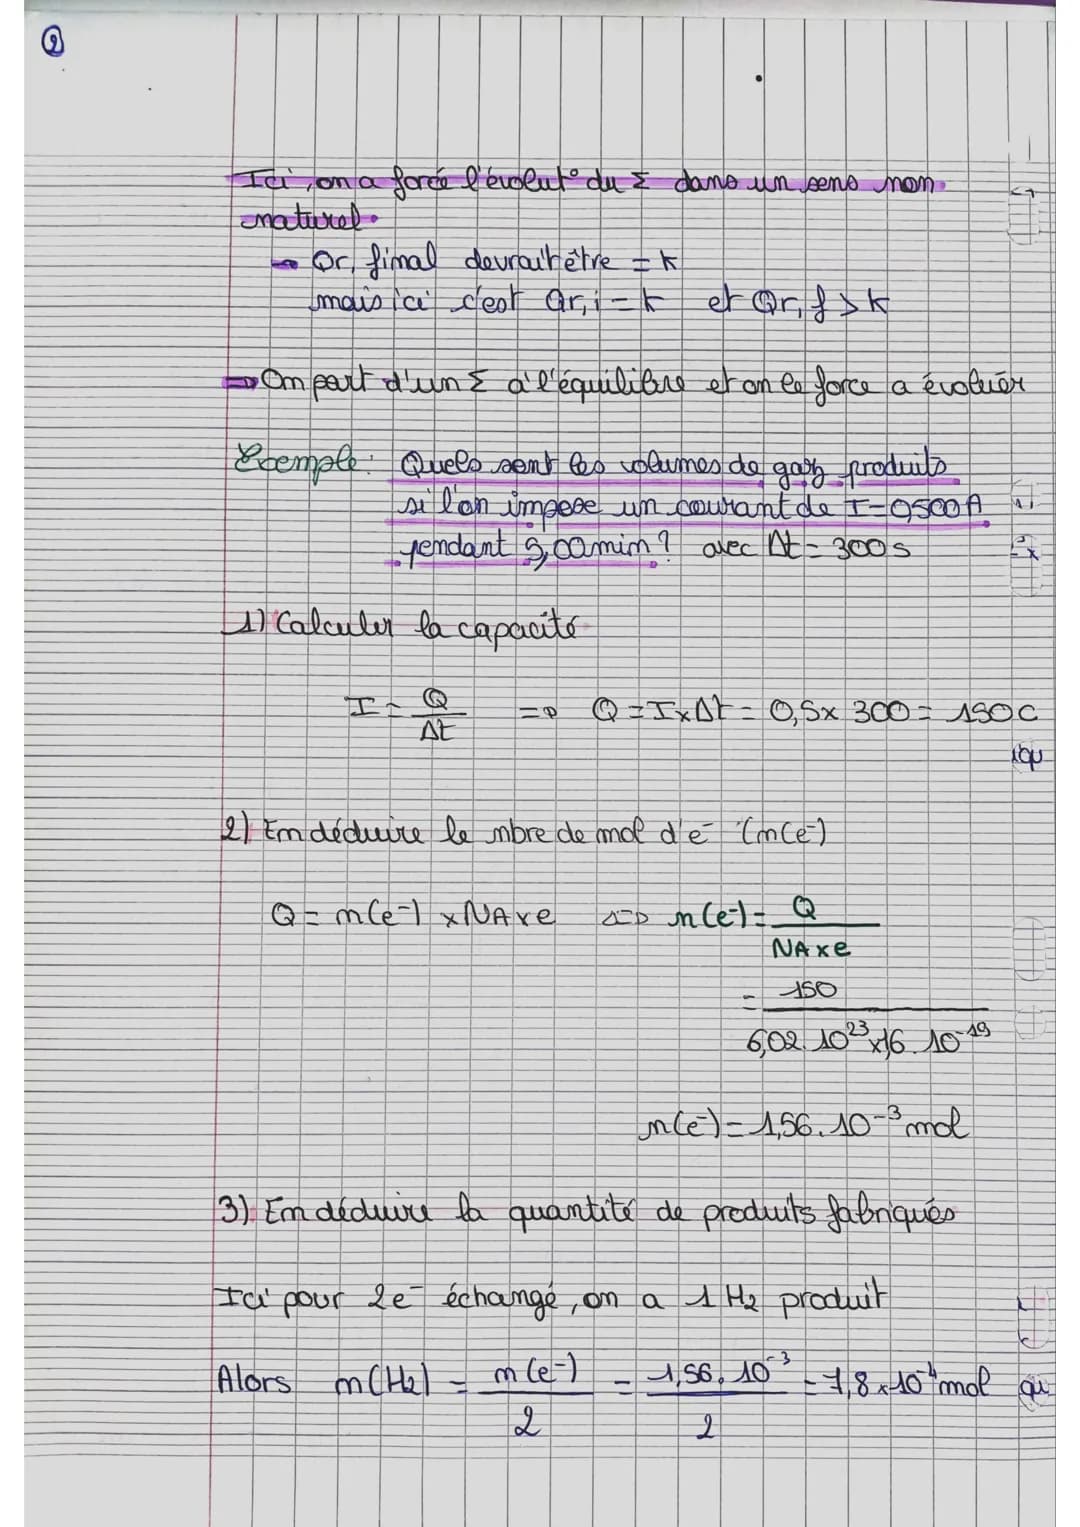 ②
Ici, on a forcé l'évolut° du Σ dans un sens non
naturel.
→ Qr, final devrait être = K
mais ici c'est Qr, i = K et Qr, f > K
⇒ On part d'un Σ à l'équilibre et on le force a évoluer
Exemple : Quels sont les volumes de gaz produits
si l'on impose un courant de I = 0,500 A
pendant 5,00 min ? avec Δt = 300 s
1) Calculer la capacité
I = Q / Δt => Q = I x Δt = 0,5 x 300 = 150 C
qu
2) En déduire le nbre de mol d'e⁻ (n(e⁻)
Q = n(e⁻) x NA x e <=> n(e⁻) = Q / NA x e
= 150 / 6,02. 10²³ x 1,6. 10⁻¹⁹
n(e⁻) = 1,56. 10⁻³ mol
3) En déduire la quantité de produits fabriqués
Ici pour 2e⁻ échangé, on a 1 H₂ produit
Alors n(H₂) = n(e⁻) / 2 = 1,56. 10⁻³ / 2 = 7,8 x 10⁻⁴ mol qu